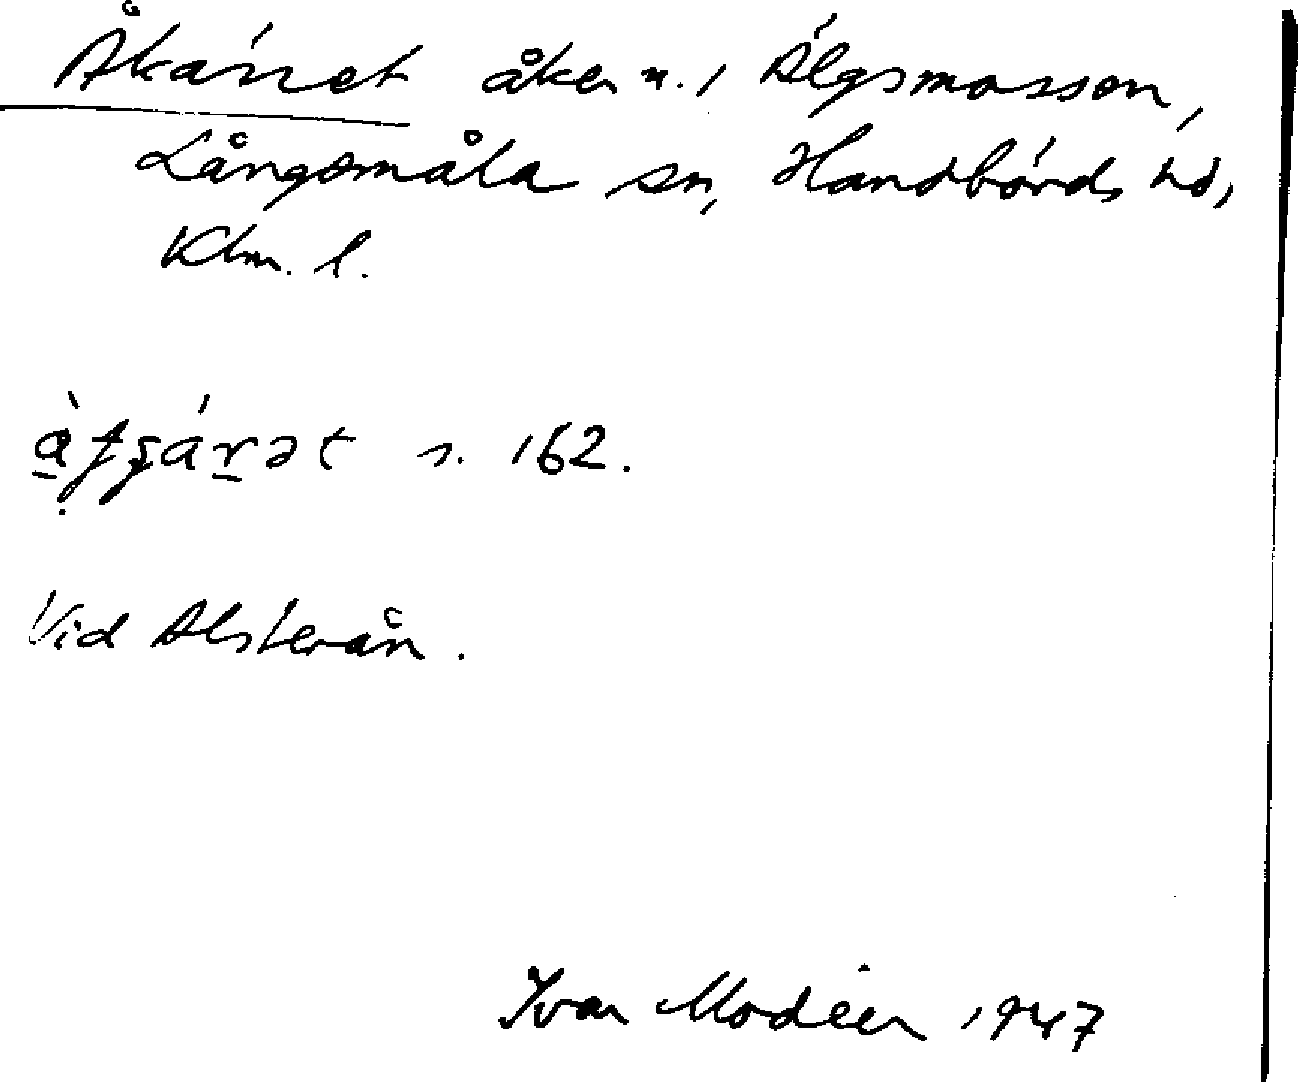 Åkärret åker n., Älgsmossen,
Långsmåla sn, Handbörds hd,
Klm. l.
s. 162.
Vid Alsterån.
Ivar Modéer 1947